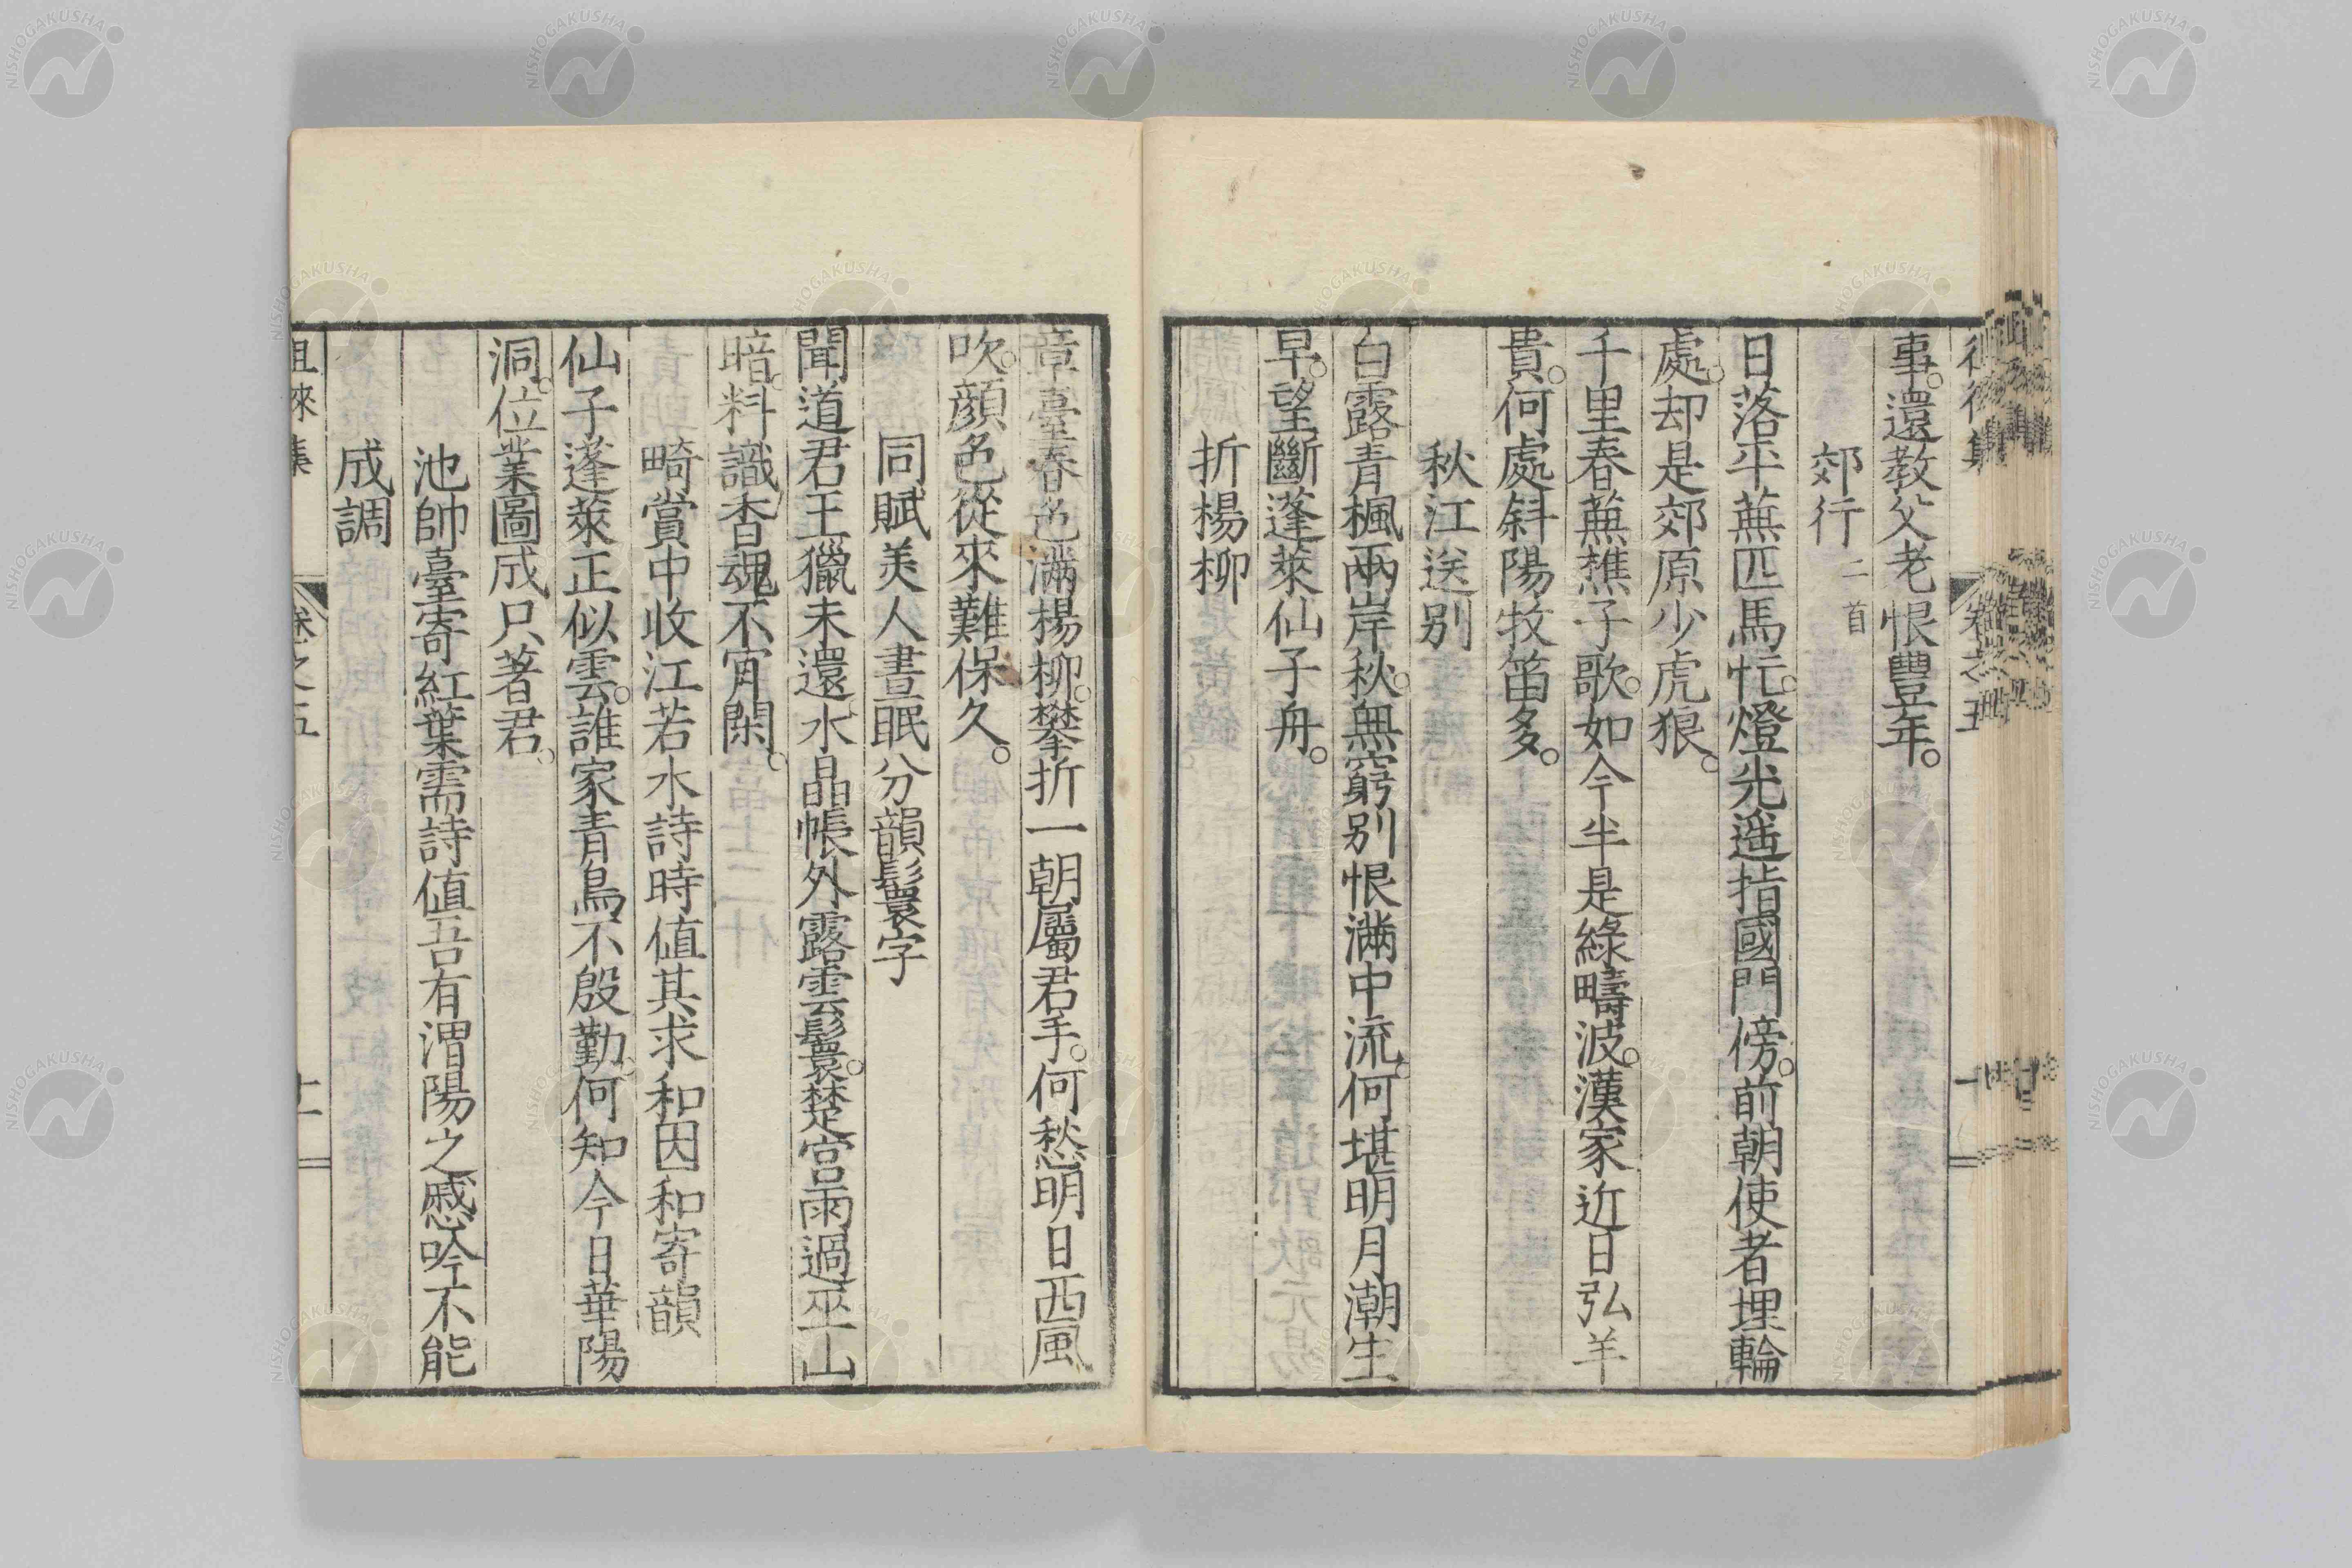 事。還教父老恨豐年。
郊行二首
日落平蕪匹馬忙。燈光遥指國門傍。前朝使者埋輪
處。却是郊原少虎狼。
千里春蕪樵子歌。如今半是綠疇波。漢家近日弘羊
貴。何處斜陽牧笛多。
秋江送別
白露青楓兩岸秋。無窮別恨滿中流。何堪明月潮生
早。望斷蓬萊仙子舟。
折楊柳
章臺春色滿楊柳。攀折一朝屬君手。何愁明日西風
吹。顏色從來難保久。
同賦美人晝眠分韻鬟字
聞道君王獵未還。水晶帳外露雲鬟。楚宮雨過巫山
暗。料識香魂不宵閑。
畸賞中收江若水詩時値其求和因和寄韻
仙子蓬萊正似雲。誰家青鳥不殷勤。何知今日華陽
洞。位業圖成只著君。
池帥臺寄紅葉需詩値吾有渭陽之慼吟不能
成調
徂徠集
卷之五
十一
NISHOGAKUSHA